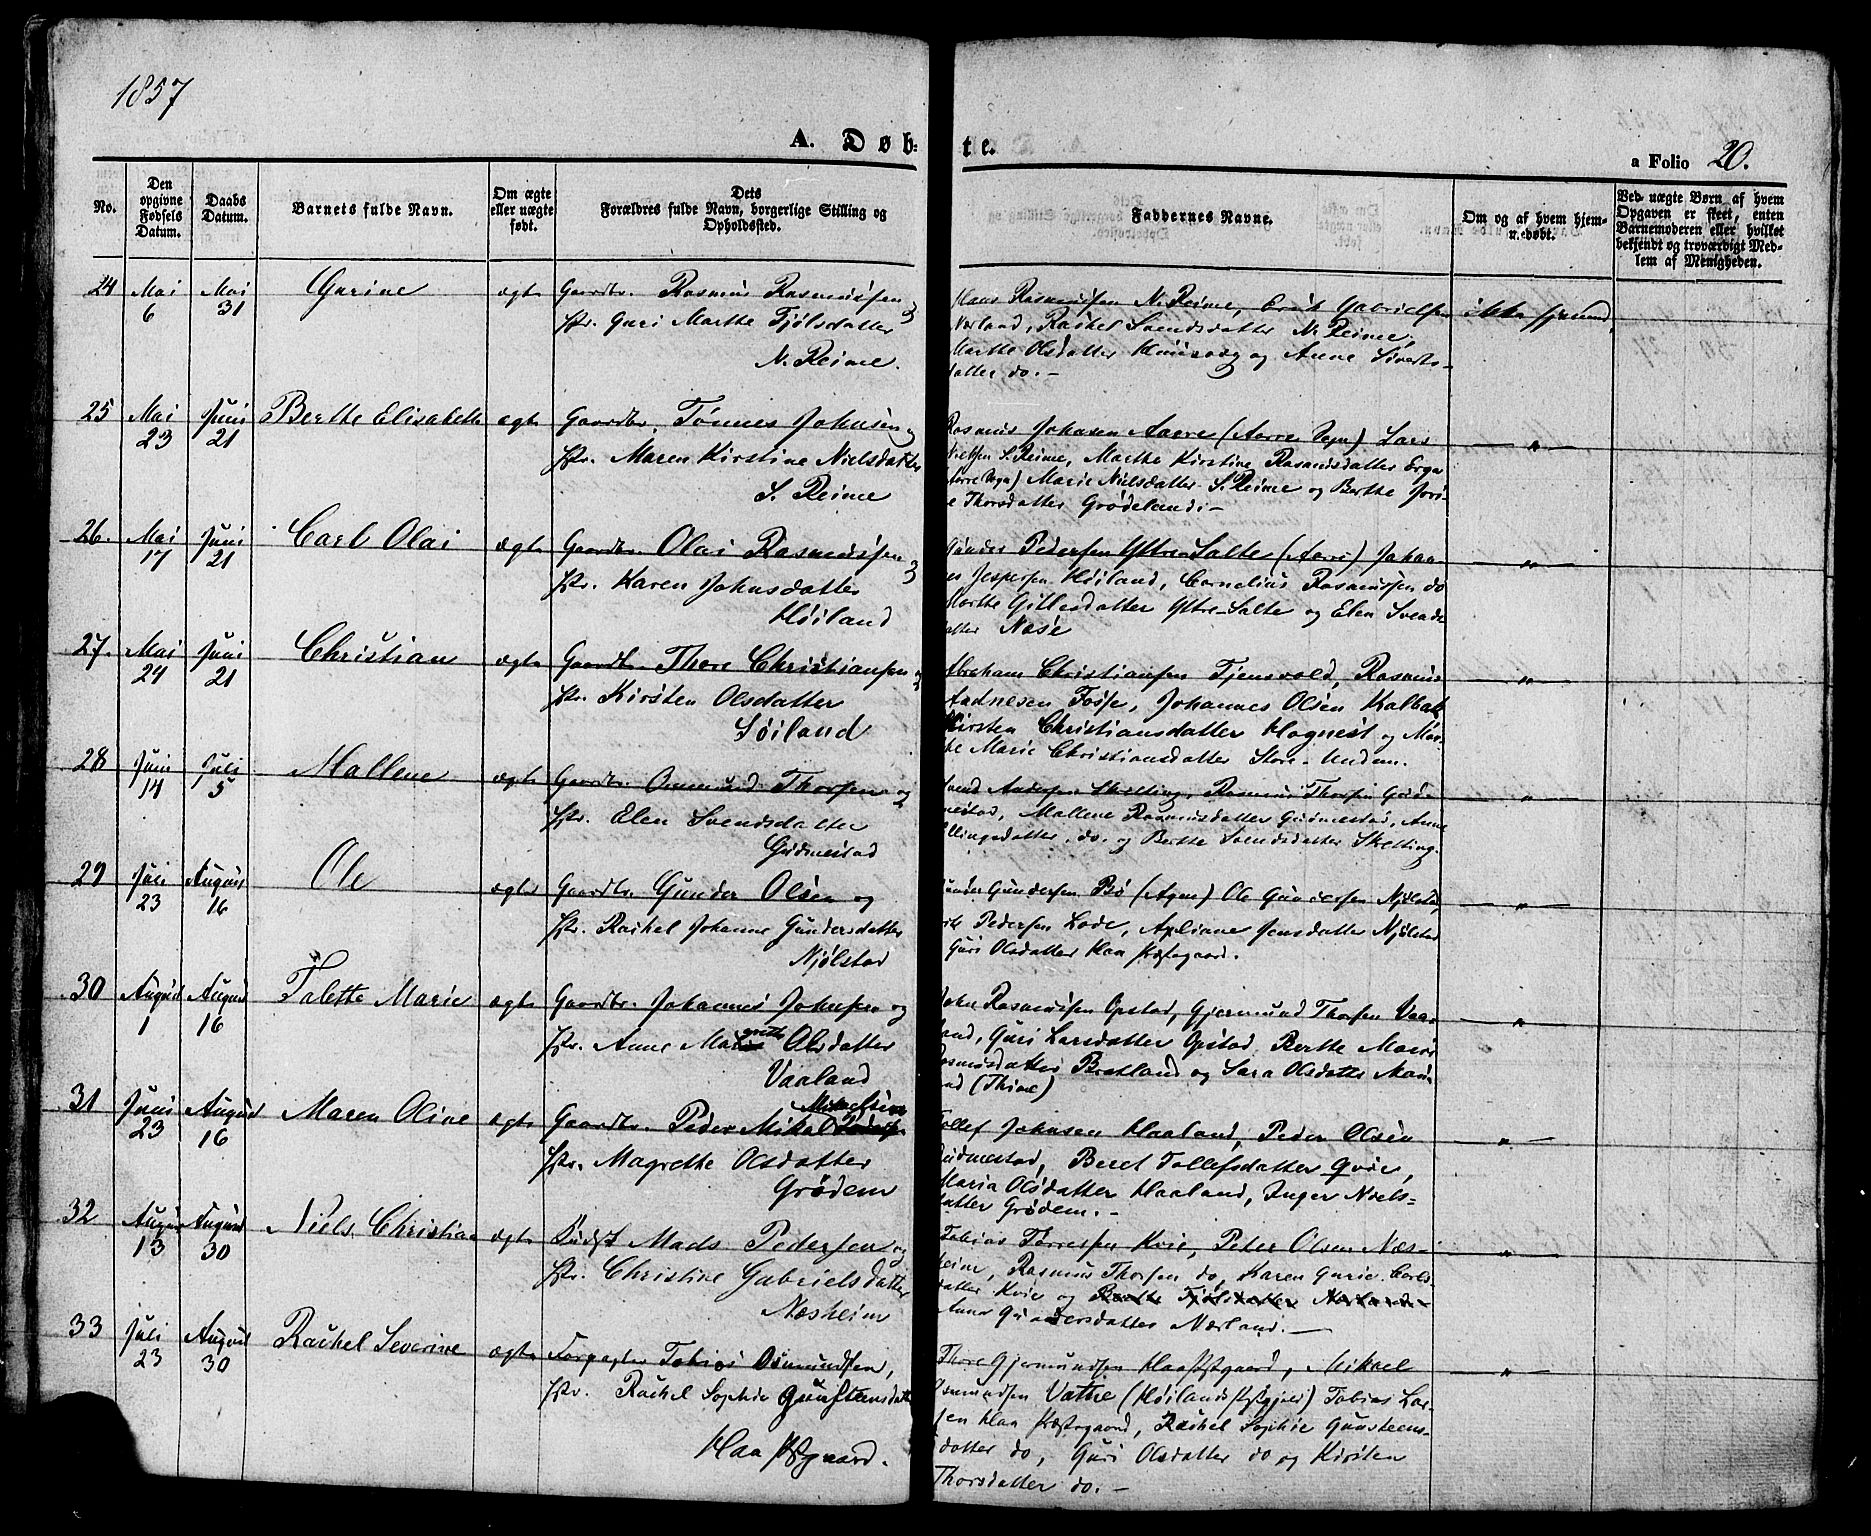 1857
A. Døb=
te.
a Folio 20.
No.
Den opgivne Fødsels Datum.
Daabs Datum.
Barnets fulde Navn.
Om ægte eller uægte født.
Dets Forældres fulde Navn, borgerlige Stilling og Opholdssted.
Faddernes Navne.
Om og af hvem hjemmedøbt.
Ved uægte Børn af hvem Opgaven er skeet, enten Barnemoderen eller hvilket bekjendt og troværdigt Medlem af Menigheden.
24 Mai 6 Mai 31 Gurine ægte Gaardbr. Rasmus Rasmussen og
Hstr. Guri Marthe Tjølsdatter
N. Reime.
Hans Rasmussen N. Reime, Erik Gabrielsen
Nærland, Rachel Svendsdatter N. Reime,
Marthe Olsdatter og Anne Siverts-
datter do. -
ikke hjemmed.
25 Mai 23 Juni 21 Berthe Elisabeth ægte Gaardbr. Tønnes Johnsen og
Hstr. Maren Kirstine Nielsdatter
S. Reime
Rasmus Johnsen Aarre (Aarre Sogn) Lars
Nielsen S. Reime, Marthe Kirstine Rasmusdatter Erga
Marie Nielsdatter S. Reime og Berthe
Thorsdatter Grødeland. -
— " —
26. Mai 17 Juni 21 Carl Olai ægte Gaardbr. Olai Rasmussen og
Hstr. Karen Johnsdatter
Høiland
Gunder Pedersen Yttre-Salte (Aarre) Johan-
es Jespersen Høiland, Cornelius Rasmussen do
Marthe Gitlesdatter Yttre-Salte og Elen Svends
datter Nese
— " —
27. Mai 24 Juni 21 Christian ægte Gaardbr. Thore Christiansen og
Hstr. Kirsten Olsdatter
Søiland
Abraham Christiansen Tjensvold, Rasmus
Aadnesen Fosse, Johannes Olsen Kalbak
Kirsten Christiansdatter Hognest og Mar-
the Marie Christiansdatter Store-Undem.
— " —
28 Juni 14 Juli 5 Mallene ægte Gaardbr. Ommund Thorsen og
Hstr. Elen Svendsdatter
Gudmestad
Svend Andersen Skretting, Rasmus Thorsen Gud-
mestad, Mallene Rasmusdatter Gudmestad, Anne
Ellingsdatter, do. og Berthe Svendsdatter Skretting.
— " —
29 Juli 23 August 16 Ole ægte Gaardbr. Gunder Olsen og
Hstr. Rachel Johanne Gundersdatter
Njølstad
Gunder Gundersen Bø (Ogne) Ole Gundersen Njølstad,
Erik Pedersen Lode, Apliane Jensdatter Njølstad
Guri Olsdatter Haa Præstegaard.
— " —
30 August 1 August 16 Talette Marie ægte Gaardbr. Johannes Johnsen og
Hstr. Anne Margrethe Olsdatter
Vaaland
John Rasmussen Opstad, Gjermund Thorsen Vaa-
land, Guri Larsdatter Opstad, Berthe Marie
Rasmusdatter Bratland og Sara Olsdatter
(Thime)
— " —
31 Juni 23 August 16 Maren Oline ægte Gaardbr. Peder Mikal Mikaelsen
Hstr. Magrethe Olsdatter
Grødem
Tollef Johnsen Haaland, Peder Olsen
Gudmestad, Beret Tollefsdatter Qvie,
Maria Olsdatter Haaland, Inger Niels-
datter Grødem. -
" —
32 August 13 August 30 Niels Christian ægte Mads Pedersen og
Hstr. Christine Gabrielsdatter
Næsheim
Tobias Tørressen Kvie, Peter Olsen Næs-
heim, Rasmus Thorsen do, Karen Gurie Carls-
datter Kvie og Berthe Tjølsdatter Nærland
Anna Gundersdatter Nærland. —
— " —
33 Juli 23 August 30 Rachel Severine ægte Forpagter Tobias Osmundsen,
Hstr. Rachel Sophie Gunsteensdatter
Haa Pstgaard.
Thore Gjermundsen Haa Pstgaard, Mikael
Osmundsen Vatne (Høilands Pstgjeld) Tobias Lar-
sen Haa Præstegaard, Rachel Sophie Gunsteens-
datter do, Guri Olsdatter do og Kirsten
Thorsdatter do. -
— " —